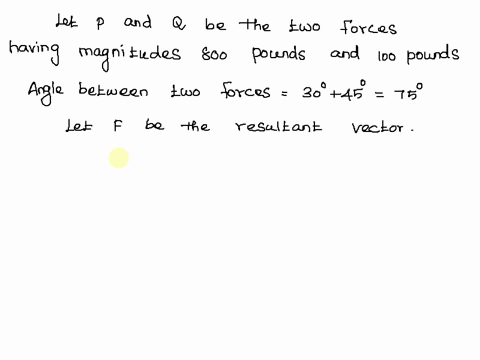 Let P and Q be the two forces
having magnitudes 800 pounds and 100 pounds
Angle between two forces = 30° + 45° = 75°
Let F be the resultant vector.